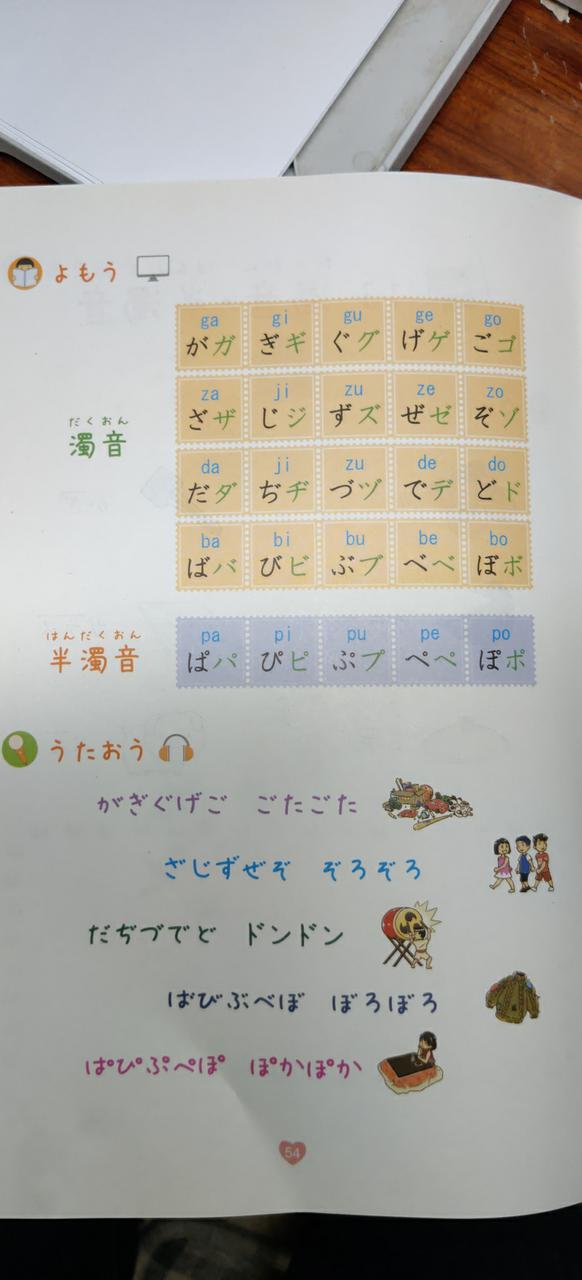 よもう
ga gi gu ge go
がガ ぎギ ぐグ げゲ ごゴ
za ji zu ze zo
ざザ じジ ずズ ぜゼ ぞゾ
だくおん
濁音
da ji zu de do
だダ ぢヂ づヅ でデ どド
ba bi bu be bo
ばバ びビ ぶブ べベ ぼボ
はんだくおん
半濁音
pa pi pu pe po
ぱパ ぴピ ぷプ ぺペ ぽポ
うたおう
がぎぐげご ごたごた
ざじずぜぞ ぞろぞろ
だぢづでど ドンドン
ばびぶべぼ ぼろぼろ
ぱぴぷぺぽ ぽかぽか
54